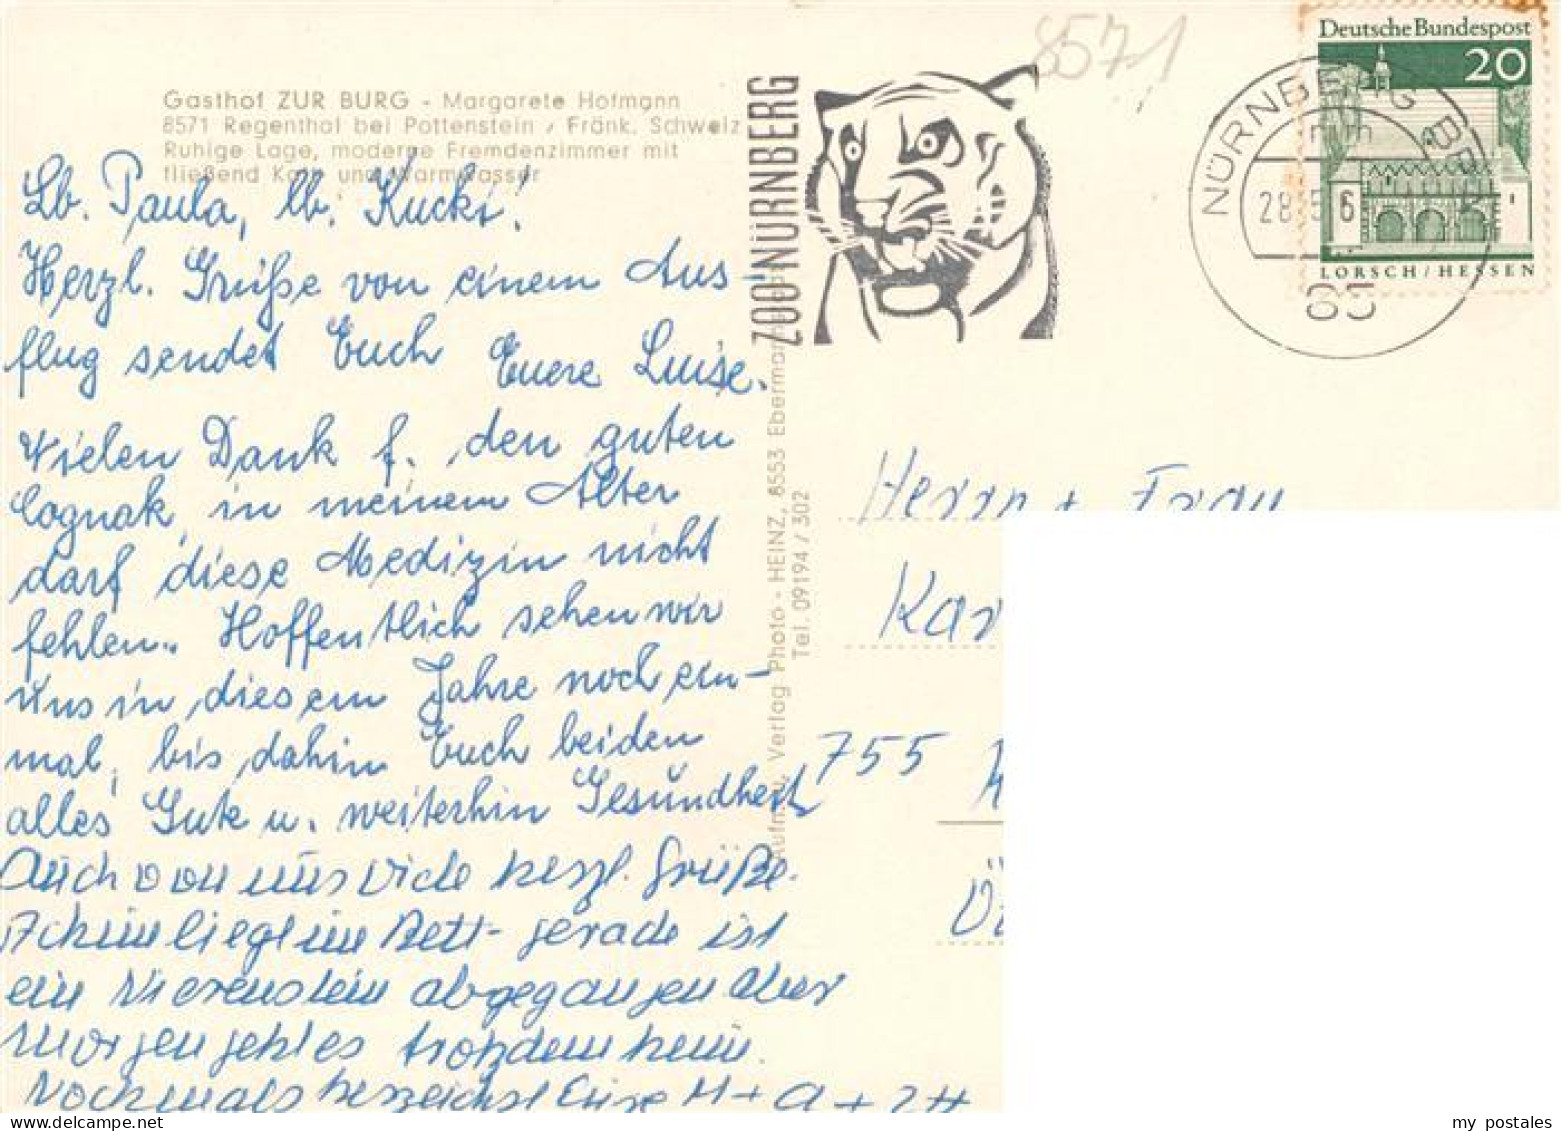 Gasthof ZUR BURG - Margarete Hofmann
8571 Regenthal bei Pottenstein, Fränk. Schweiz
Ruhige Lage, moderne Fremdenzimmer mit
fließend Kalt- und Warmwasser
Lb. Paula, lb. Kucki!
Herzl. Grüße von einem Aus-
flug sendet Euch Euere Luise.
Vielen Dank f. den guten
Cognak, in meinem Alter
darf diese Medizin nicht
fehlen. Hoffentlich sehen wir
uns in diesem Jahre noch ein-
mal, bis dahin Euch beiden
alles Gute u. weiterhin Gesundheit
Auch von uns viele herzl. Grüße.
liegt im Bett - gerade ist
ein Nierenstein abgegangen aber
morgen geht es trotzdem heim.
Nochmals herzlichst Eure M + A +
Aufn. u. Verlag Photo - HEINZ, 8553 Ebermannstadt
Tel. 09194 / 302
ZOO NÜRNBERG
8571
Deutsche Bundespost
20
LORSCH / HESSEN
NÜRNBERG BPA
28.5.6
85
Herrn + Frau
Kar
755